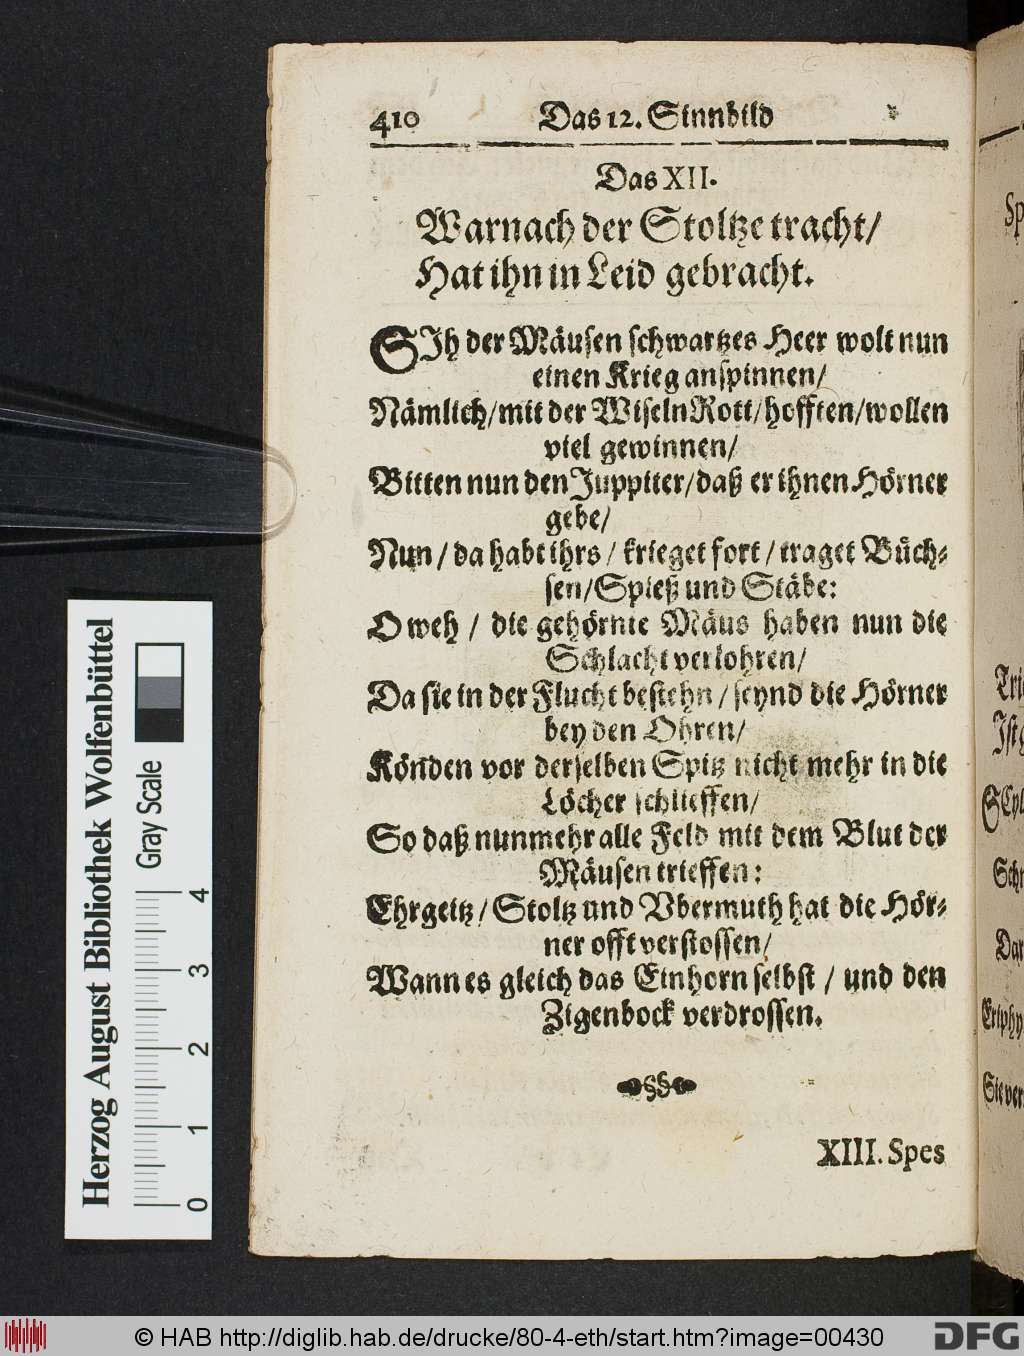 410 Das 12. Sinnbild
Das XII.
Warnach der Stoltze tracht/
Hat ihn in Leid gebracht.
SJh der Mäusen schwartzes Heer wolt nun
einen Krieg anspinnen/
Nämlich/mit der Wiseln Rott/hofften/wollen
viel gewinnen/
Bitten nun den Juppiter/daß er ihnen Hörner
gebe/
Nun / da habt ihrs / krieget fort / traget Büch-
sen/Spieß und Stäbe:
O weh / die gehörnte Mäus haben nun die
Schlacht verlohren/
Da sie in der Flucht bestehn / seynd die Hörner
bey den Ohren/
Köñden vor derselben Spitz nicht mehr in die
Löcher schlieffen/
So daß nunmehr alle Feld mit dem Blut der
Mäusen trieffen:
Ehrgeitz / Stoltz und Vbermuth hat die Hör-
ner offt verstossen/
Wann es gleich das Einhorn selbst / und den
Zigenbock verdrossen.
XIII. Spes
Herzog August Bibliothek Wolfenbüttel
Gray Scale
0 1 2 3 4
© HAB http://diglib.hab.de/drucke/80-4-eth/start.htm?image=00430
DFG